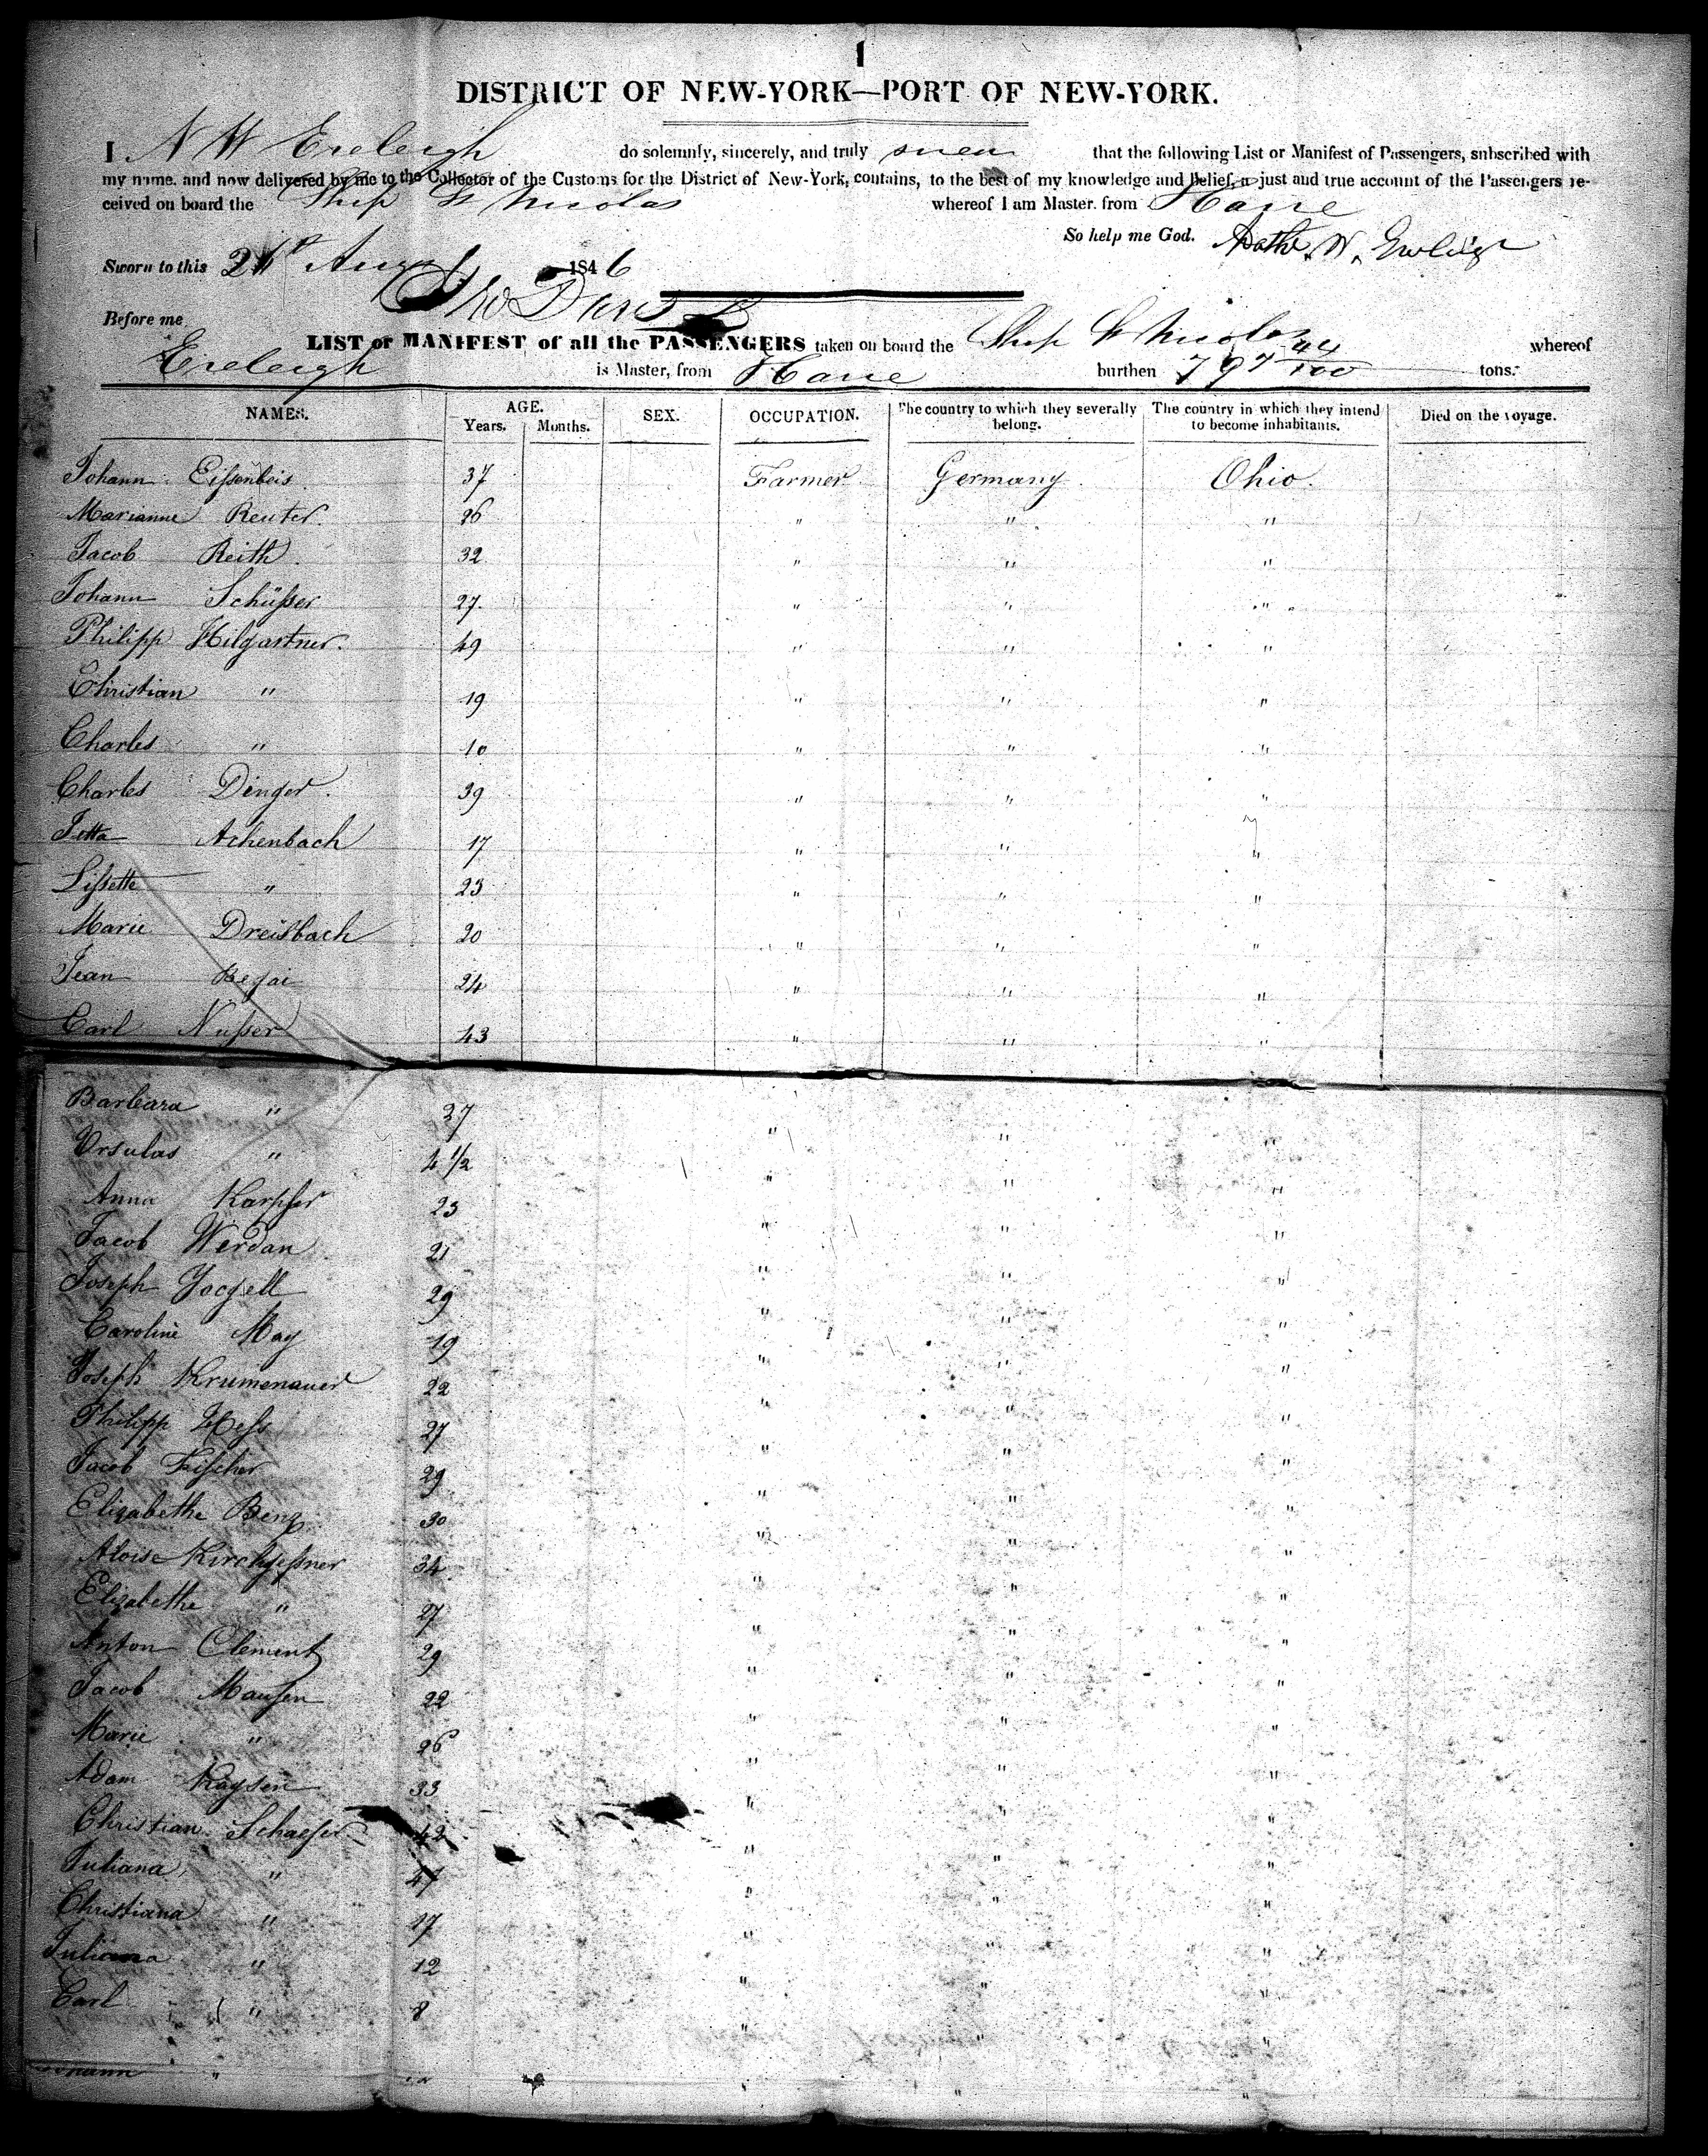 1
DISTRICT OF NEW-YORK—PORT OF NEW-YORK.
I N W Eveleigh do solemnly, sincerely, and truly swear that the following List or Manifest of Passengers, subscribed with
my name, and now delivered by me to the Collector of the Customs for the District of New-York, contains, to the best of my knowledge and belief, a just and true account of the Passengers re-
ceived on board the Ship St Nicolas whereof I am Master, from Havre
So help me God. W. Eveleigh
Sworn to this Augt 1846
Before me
LIST or MANIFEST of all the PASSENGERS taken on board the Ship St Nicolas whereof
Eveleigh is Master, from Havre burthen 797 44/100 tons.
NAMES. AGE. Years. Months. SEX. OCCUPATION. The country to which they severally belong. The country in which they intend to become inhabitants. Died on the voyage.
Johann Eißenbeis 37 Farmer Germany Ohio.
Marianne Reuter. 26 " " "
Jacob Reith. 32 " " "
Johann Schüßer 27. " " "
Philipp Hilgartner. 49 " " "
Christian " 19 " " "
Charles " 10 " " "
Charles Dinger. 39 " " "
Jetta Achenbach 17 " " "
Lißette " 23 " " "
Marie Dreisbach 20 " " "
Jean 24 " " "
Carl Nußer 43 " " "
Barbara " 37 " " "
Ursulas " 4 1/2 " " "
Anna Karpfer 23 " " "
Jacob Werdan 21 " " "
Joseph 29 " " "
Caroline May 19 " " "
Joseph Krumenauer 22 " " "
Philipp Heß 27 " " "
Jacob Fischer 29 " " "
Elizabethe Benz 30 " " "
Aloise Kirchgeßner 34 " " "
Elizabethe " 27 " " "
Anton Clement 29 " " "
Jacob Maußen 22 " " "
Marie " 26 " " "
Adam Kaysen 33 " " "
Christian Schaefer 42 " " "
Juliana " 47 " " "
Christiana " 17 " " "
Juliana " 12 " " "
Carl " 8 " " "
" " "